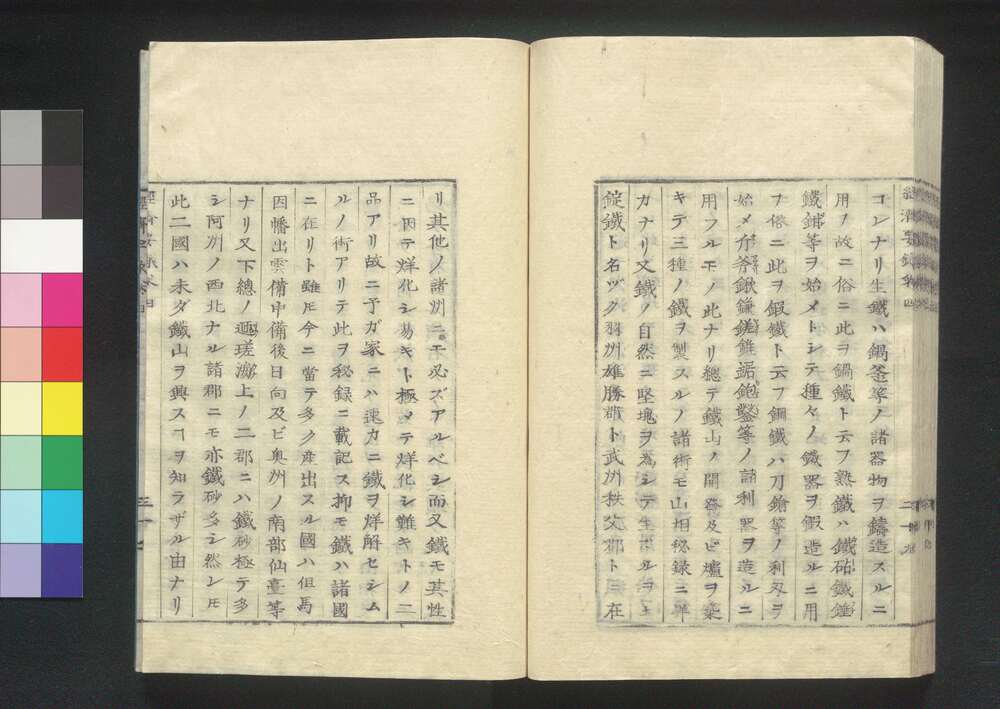 コレナリ生鐵ハ鍋釜等ノ諸器物ヲ鑄造スルニ
用フ故ニ俗ニ此ヲ鍋鐵ト云フ熟鐵ハ鐵砧鐵錘
鐵鋪等ヲ始メトシテ種々ノ鐵器ヲ假造ルニ用
フ俗ニ此ヲ鍛鐵ト云フ鋼鐵ハ刀鎗等ノ利刃ヲ
始メ斧鍬鎌錐鋸鉋鑿等ノ諸利器ヲ造ルニ
用フルモノ此ナリ總テ鐵山ノ開發及ビ爐ヲ築
キテ三種ノ鐵ヲ製スルノ諸術モ山相秘録ニ詳
カナリ又鐵ノ自然ニ堅塊ヲ為シテ生ズルヲ
錠鐵ト名ヅク羽洲雄勝郡ト武洲秩父郡トニ在
リ其他ノ諸洲ニモ必ズアルベシ而又鐵モ其性
ニ因テ烊化シ易キト極メテ烊化シ難キトノ二
品アリ故ニ予ガ家ニハ速カニ鐵ヲ烊解セシム
ルノ術アリテ此ヲ秘録ニ載記ス抑モ鐵ハ諸國
ニ在リト雖モ今ニ當テ多ク産出スル國ハ但馬
因幡出雲備中備後日向及ビ奥洲ノ南部仙臺等
ナリ又下總ノ匝瑳海上ノ二郡ニハ鐵砂極テ多
シ阿洲ノ西北ナル諸郡ニモ亦鐵砂多シ然レモ
此二國ハ未ダ鐵山ヲ興スヿヲ知ラザル由ナリ